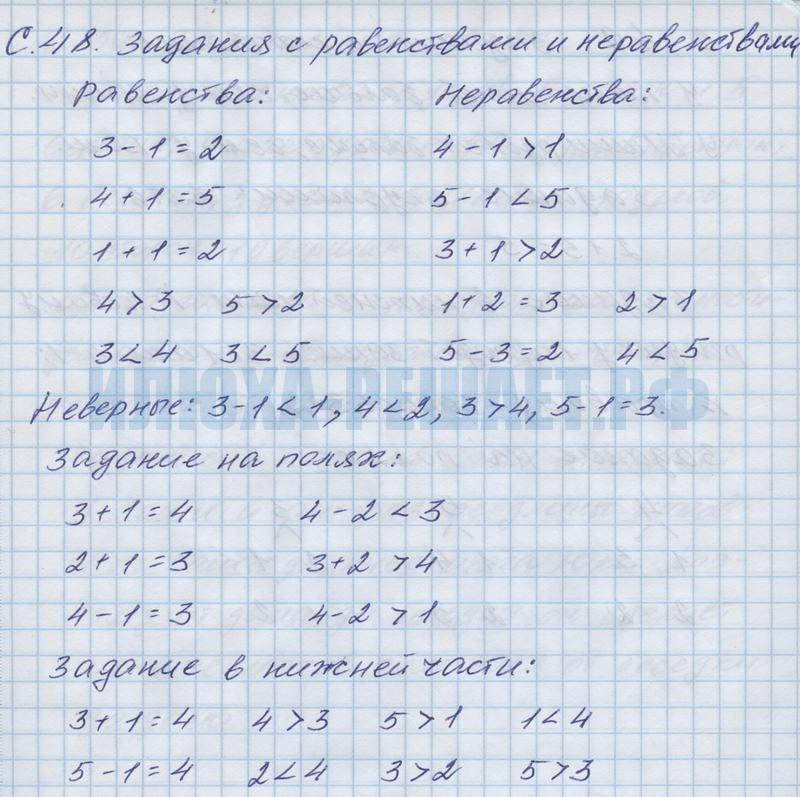 С.48. Задания с равенствами и неравенствами
Равенства: Неравенства:
3-1=2 4-1>1
4+1=5 5-1<5
1+1=2 3+1>2
4>3 5>2 1+2=3 2>1
3<4 3<5 5-3=2 4<5
ИЛЮХА-РЕШАЕТ.РФ
Неверные: 3-1<1, 4<2, 3>4, 5-1=3.
Задание на полях:
3+1=4 4-2<3
2+1=3 3+2>4
4-1=3 4-2>1
Задание в нижней части:
3+1=4 4>3 5>1 1<4
5-1=4 2<4 3>2 5>3